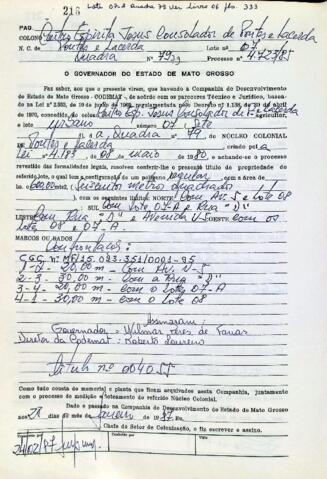 216 Lote 07.A quadra 79 ver Livro 06 fls. 333
PAG
COLONO Centro Espírita Jesus Consolador de Pontes e Lacerda
N. C. de Pontes e Lacerda Lote n.o 07
Quadra nº 79 Processo n.o 4.723/85
O GOVERNADOR DO ESTADO DE MATO GROSSO
Faz saber, aos que a presente virem, que havendo a Companhia de Desenvolvimento
do Estado de Mato Grosso - CODEMAT, de acordo com os pareceres Técnico e Jurídico, baseados
na Lei n.o 2.353, de 19 de junho de regulamentada pelo Decreto n.o 1.138, de 23 de abril
de 1970, concedido ao colono Centro Esp. Jesus Consolador de P. e Lacerda agricultor,
o lote urbano número 07
da Quadra 79, do NÚCLEO COLONIAL
de Pontes e Lacerda
Lei nº 4.187, de 08 de maio de 1980, e achando-se o processo
revestido das formalidades legais, resolveu conferir-lhe o presente título de propriedade do
referido lote, o qual tem a configuração de um polígono regular, com a área de
600 m² (Seiscentos metros quadrados)
com os seguintes limites: NORTE Com Av. 5 e lote 08
SUL Com lote 07-A e Rua "D"
LESTE Com Rua "D" e Avenida V-5 OESTE com os
lote 08 e 07-A.
MARCOS OU RADOS Confrontações:
CGC. nº MF/15.023.351/0001-95
1-2 - 20,00 m - Com Av. V-5
2-3 - 30,00 m - Com a Rua "D"
3-4 - 20,00 m - com o lote 07-A
4-1 - 30,00 m - com o lote 08
Assinaram:
Governador = Wilmar Peres de Farias
Diretor da Codemat = Roberto Loureiro
Título nº 004055
Como tudo consta do memorial e planta que ficam arquivados nesta Companhia, juntamente
com o processo de medição e loteamento do referido Núcleo Colonial.
Dado e passado na Companhia de Desenvolvimento do Estado de Mato Grosso,
aos 28 dias do mês de janeiro de 1987. Eu
Chefe do Setor de Colonização, o fiz escrever e assino.
24/02/87